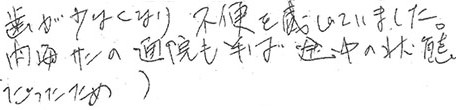 歯が少なくなり 不便を感じていました。
内海サンの通院も半ば途中の状態
だったため )